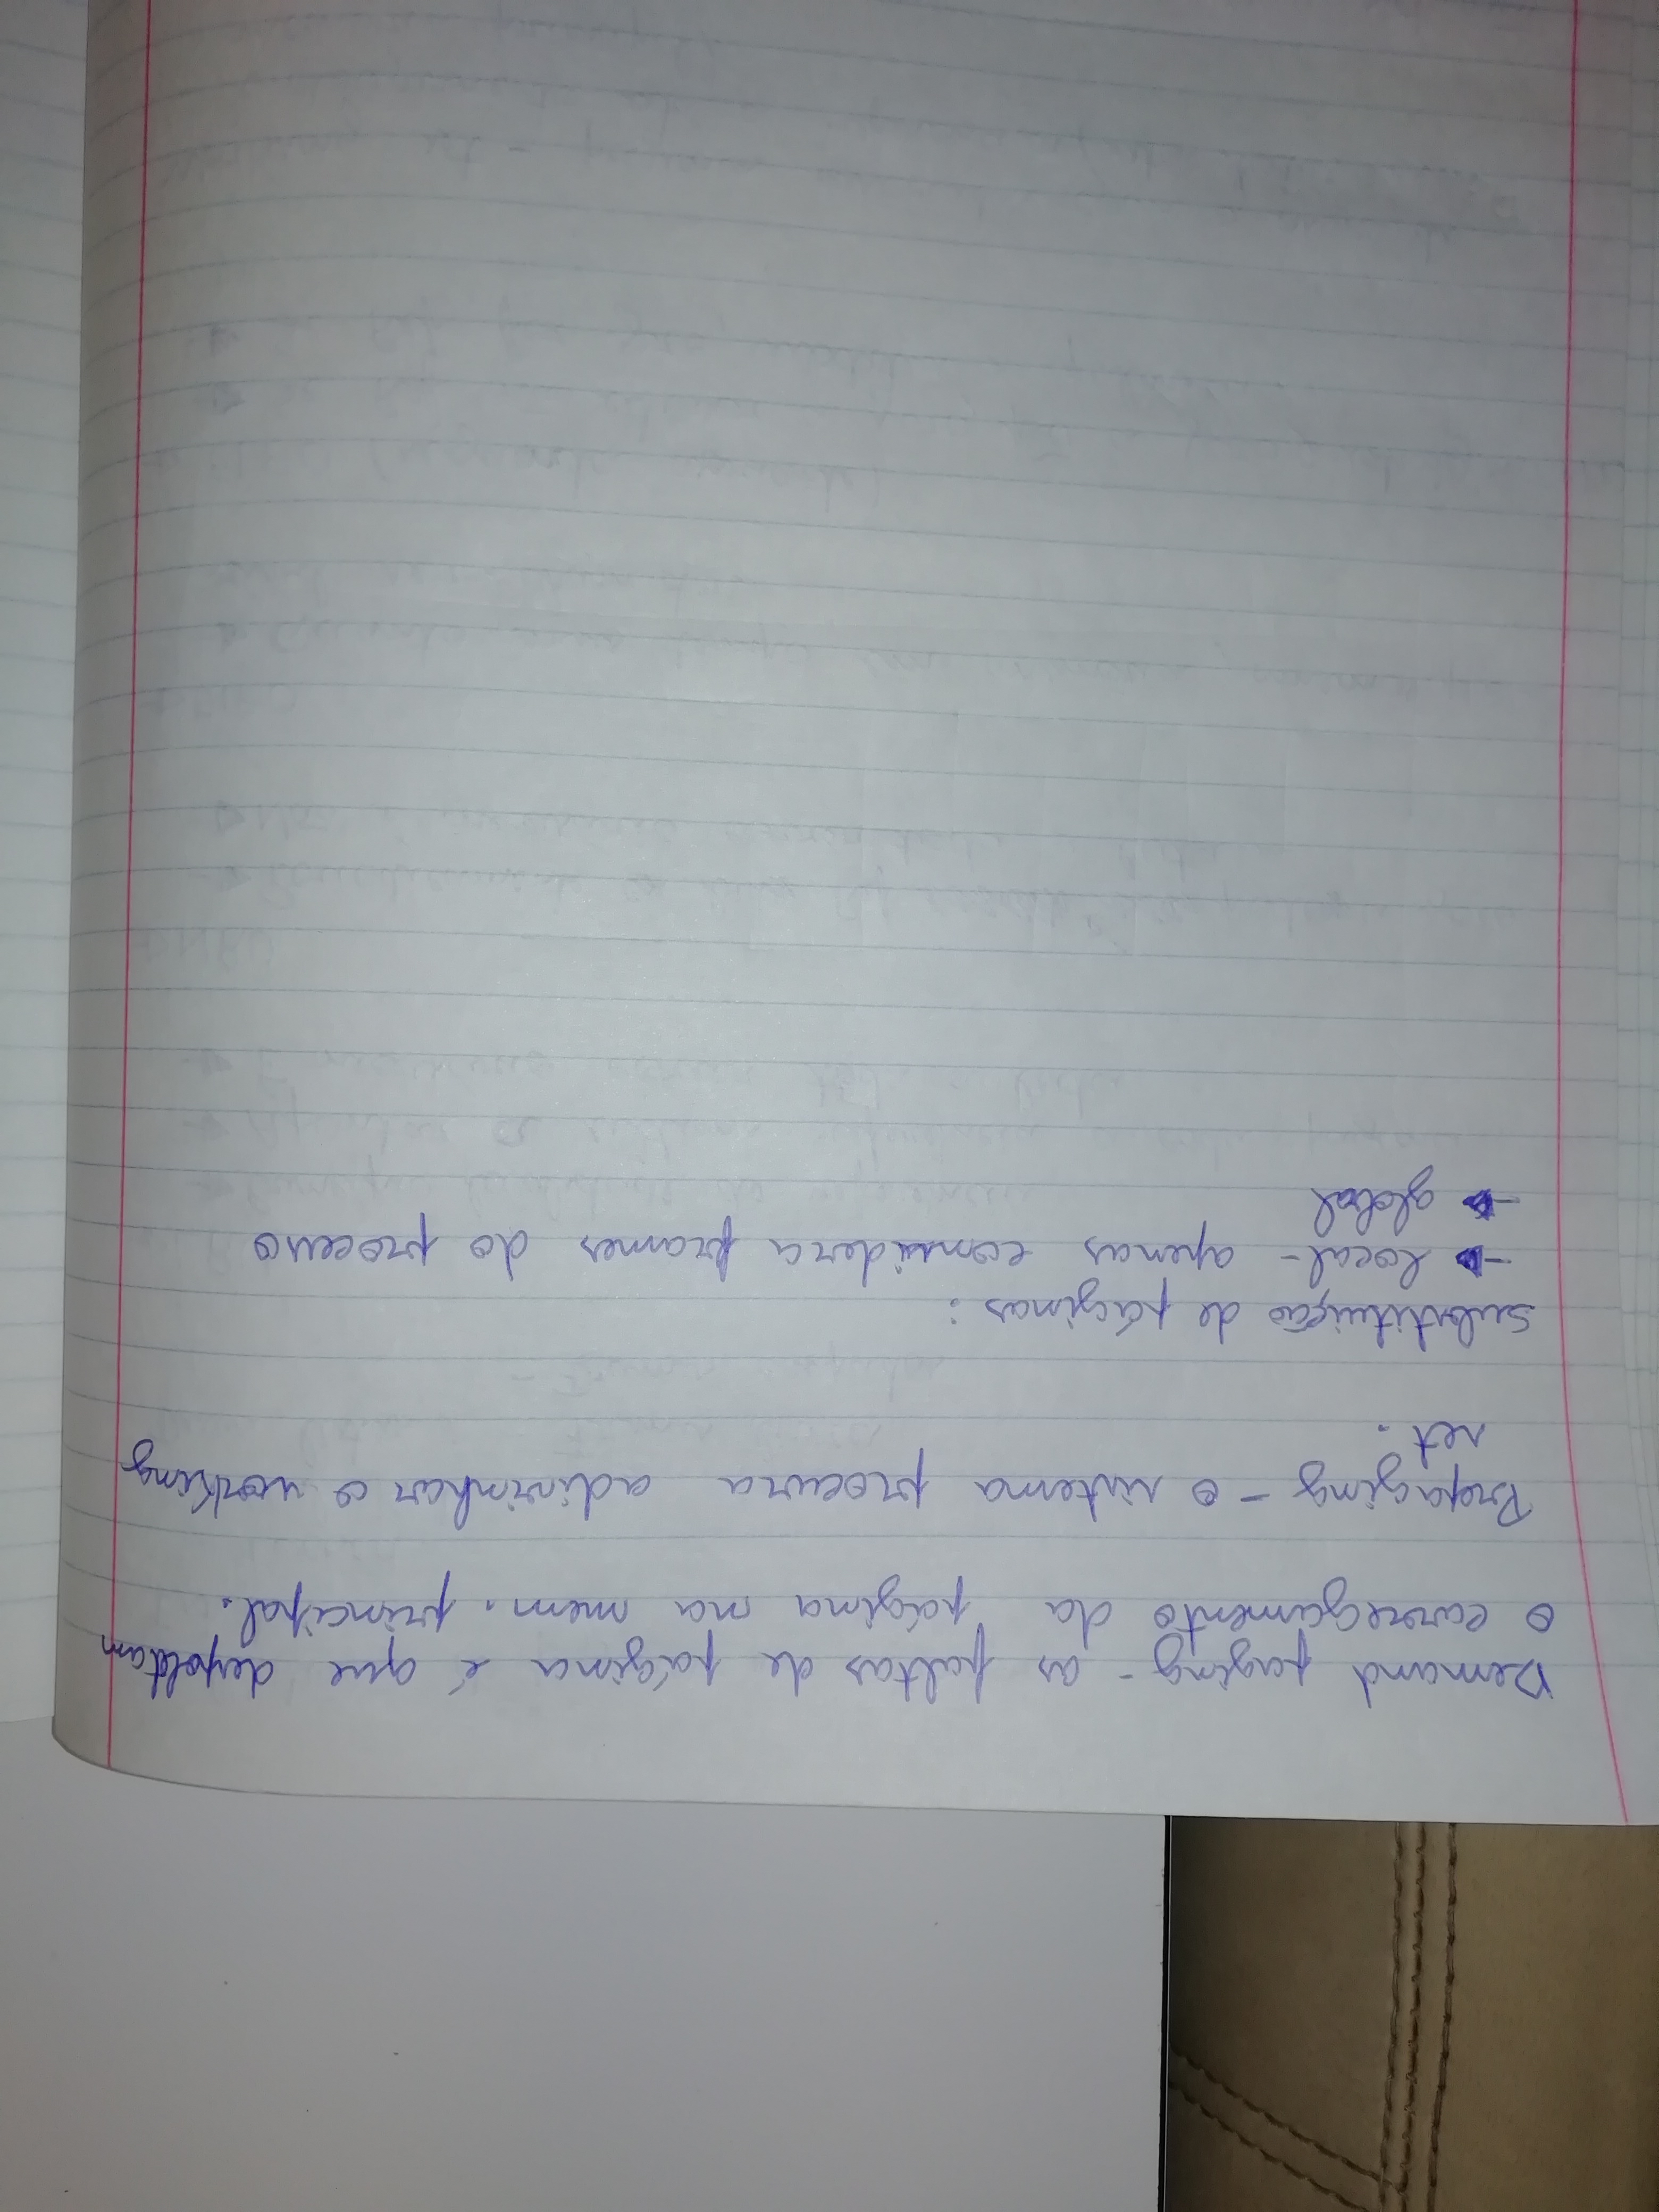 Demand paging - as faltas de página é que despoletam
o carregamento da página na mem. principal.
Prepaging - o sistema procura adivinhar o working
set.
Substituição de páginas:
→ local - apenas considera frames do processo
→ global